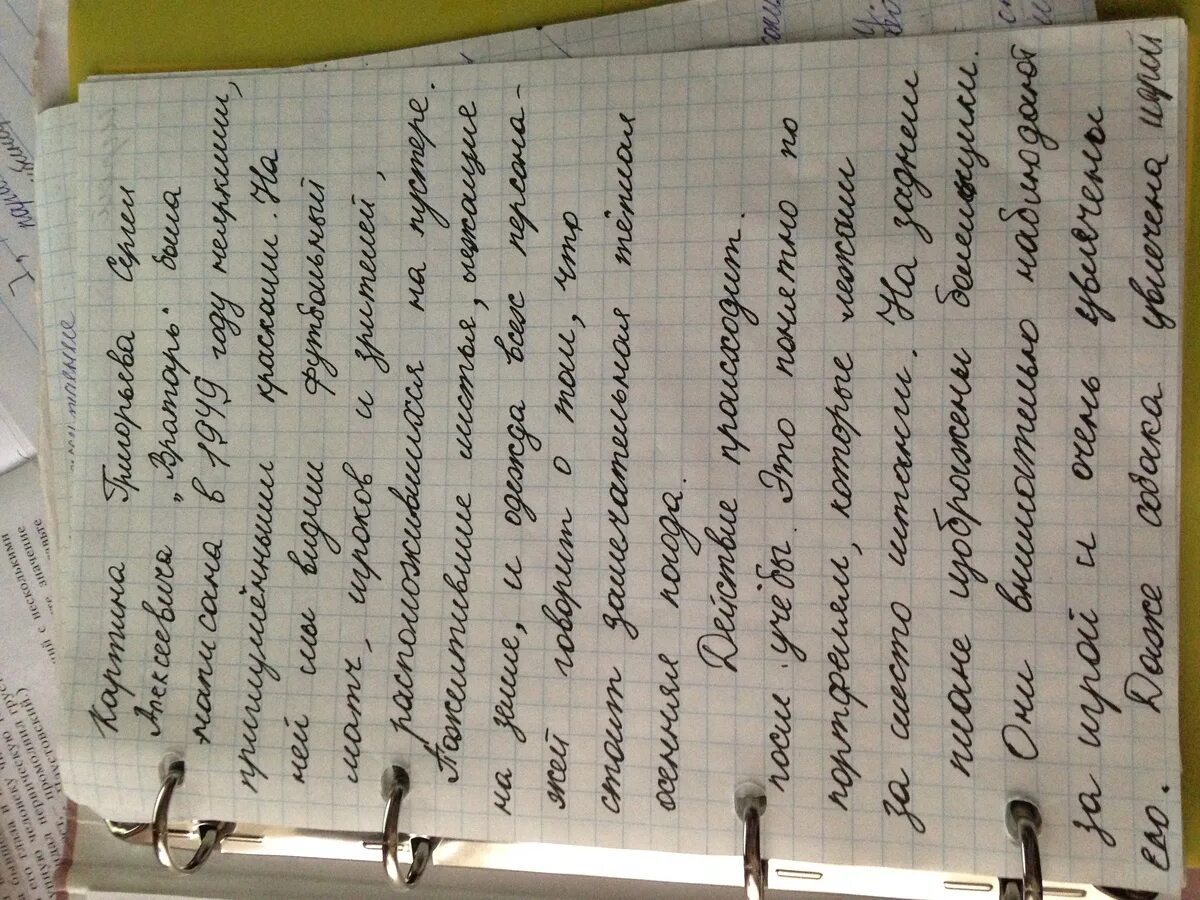 Картина Григорьева Сергея
Алексеевича „Вратарь" была
написана в 1949 году неяркими,
приглушёнными красками. На
ней мы видим футбольный
матч, игроков и зрителей,
расположившихся на пустере.
Пожелтившие листья, лежащие
на земле, и одежда всех персона-
жей говорит о том, что
стоит замечательная тёплая
осенняя погода.
Действие происходит
после учёбы. Это понетно по
портфелям, которые лежат
за место штанги. На заднем
плане изображены болельщики.
Они внимательно наблюдают
за игрой и очень увлечены
ею. Даже собака увлечена игрой